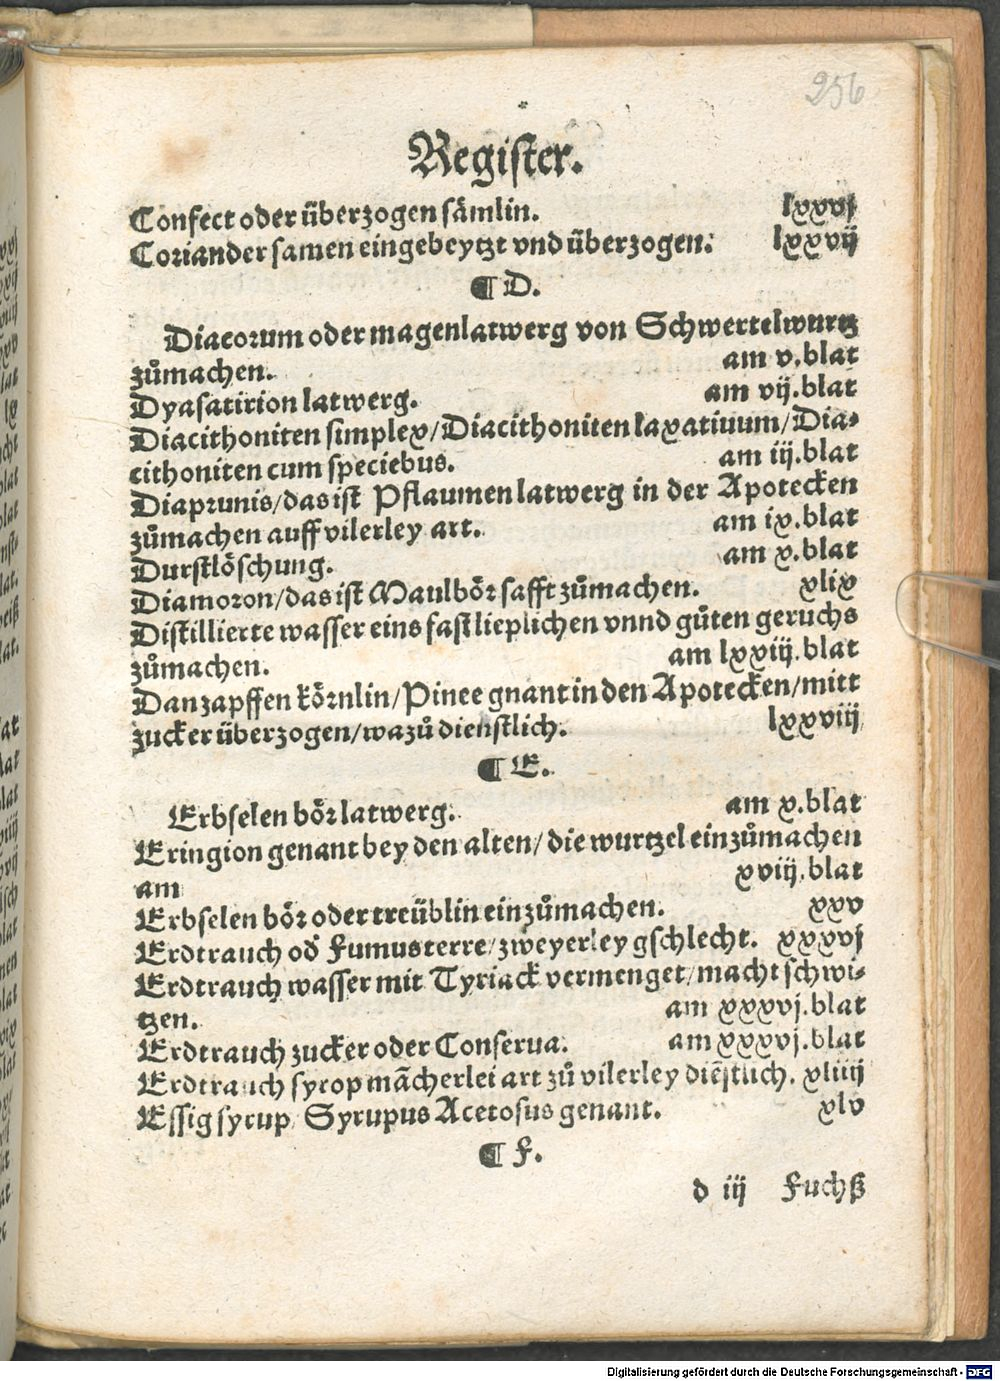 256
Register.
Confect oder überzogen sämlin. lxxvj
Coriander samen eingebeytzt vnd überzogen. lxxvij
¶ D.
Diacorum oder magenlatwerg von Schwertelwurtz
zůmachen. am v.blat
Dyasatirion latwerg. am vij.blat
Diacithoniten simplex/Diacithoniten laxatiuum/Dia-
cithoniten cum speciebus. am iij.blat
Diaprunis/das ist Pflaumen latwerg in der Apotecken
zůmachen auff vilerley art. am ix.blat
Durstlöschung. am x.blat
Diamoron/das ist Maulbör safft zůmachen. xlix
Distillierte wasser eins fast lieplichen vnnd gůten geruchs
zůmachen. am lxxiij.blat
Danzapffen körnlin/Pinee gnant in den Apotecken/mitt
zucker überzogen/wazů dienstlich. lxxviij
¶ E.
Erbselen bör latwerg. am x.blat
Eringion genant bey den alten/die wurtzel einzůmachen
am xviij.blat
Erbselen bör oder treüblin einzůmachen. xxv
Erdtrauch od̕ Fumusterre/zweyerley gschlecht. xxxvj
Erdtrauch wasser mit Tyriack vermenget/macht schwi-
tzen. am xxxvj.blat
Erdtrauch zucker oder Conserua. am xxxvj.blat
Erdtrauch syrop mācherlei art zů vilerley diēstlich. xliiij
Essig syrup/Syrupus Acetosus genant. xlv
¶ F.
d iij Fuchß
Digitalisierung gefördert durch die Deutsche Forschungsgemeinschaft - DFG